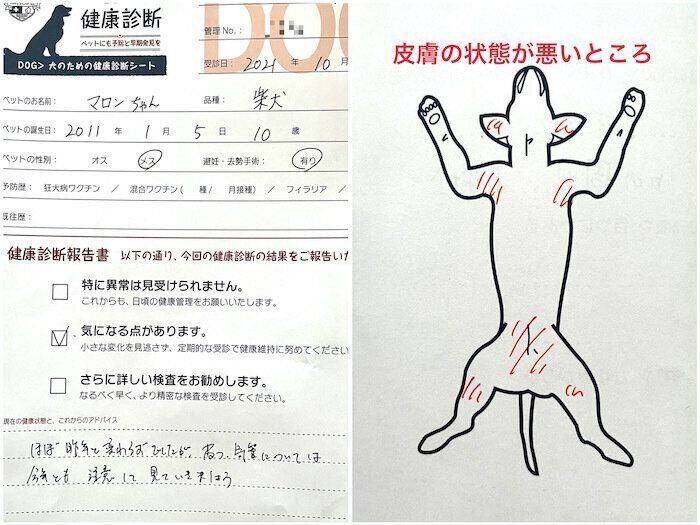 健康診断
ペットにも予防と早期発見を
DOG> 犬のための健康診断シート
管理 No.:
受診日: 2021 年 10 月
ペットのお名前: マロンちゃん 品種: 柴犬
ペットの誕生日: 2011 年 1 月 5 日 10 歳
ペットの性別: オス メス 避妊・去勢手術: 有り
予防歴: 狂犬病ワクチン / 混合ワクチン( 種/ 月接種) / フィラリア /
既往歴:
健康診断報告書 以下の通り、今回の健康診断の結果をご報告いた
特に異常は見受けられません。
これからも、日頃の健康管理をお願いいたします。
気になる点があります。
小さな変化を見逃さず、定期的な受診で健康維持に努めてください
さらに詳しい検査をお勧めします。
なるべく早く、より精密な検査を受診してください。
現在の健康状態と、これからのアドバイス
ほぼ昨年と変わらずでしたが、
については
今後とも 注意して見ていきましょう
皮膚の状態が悪いところ